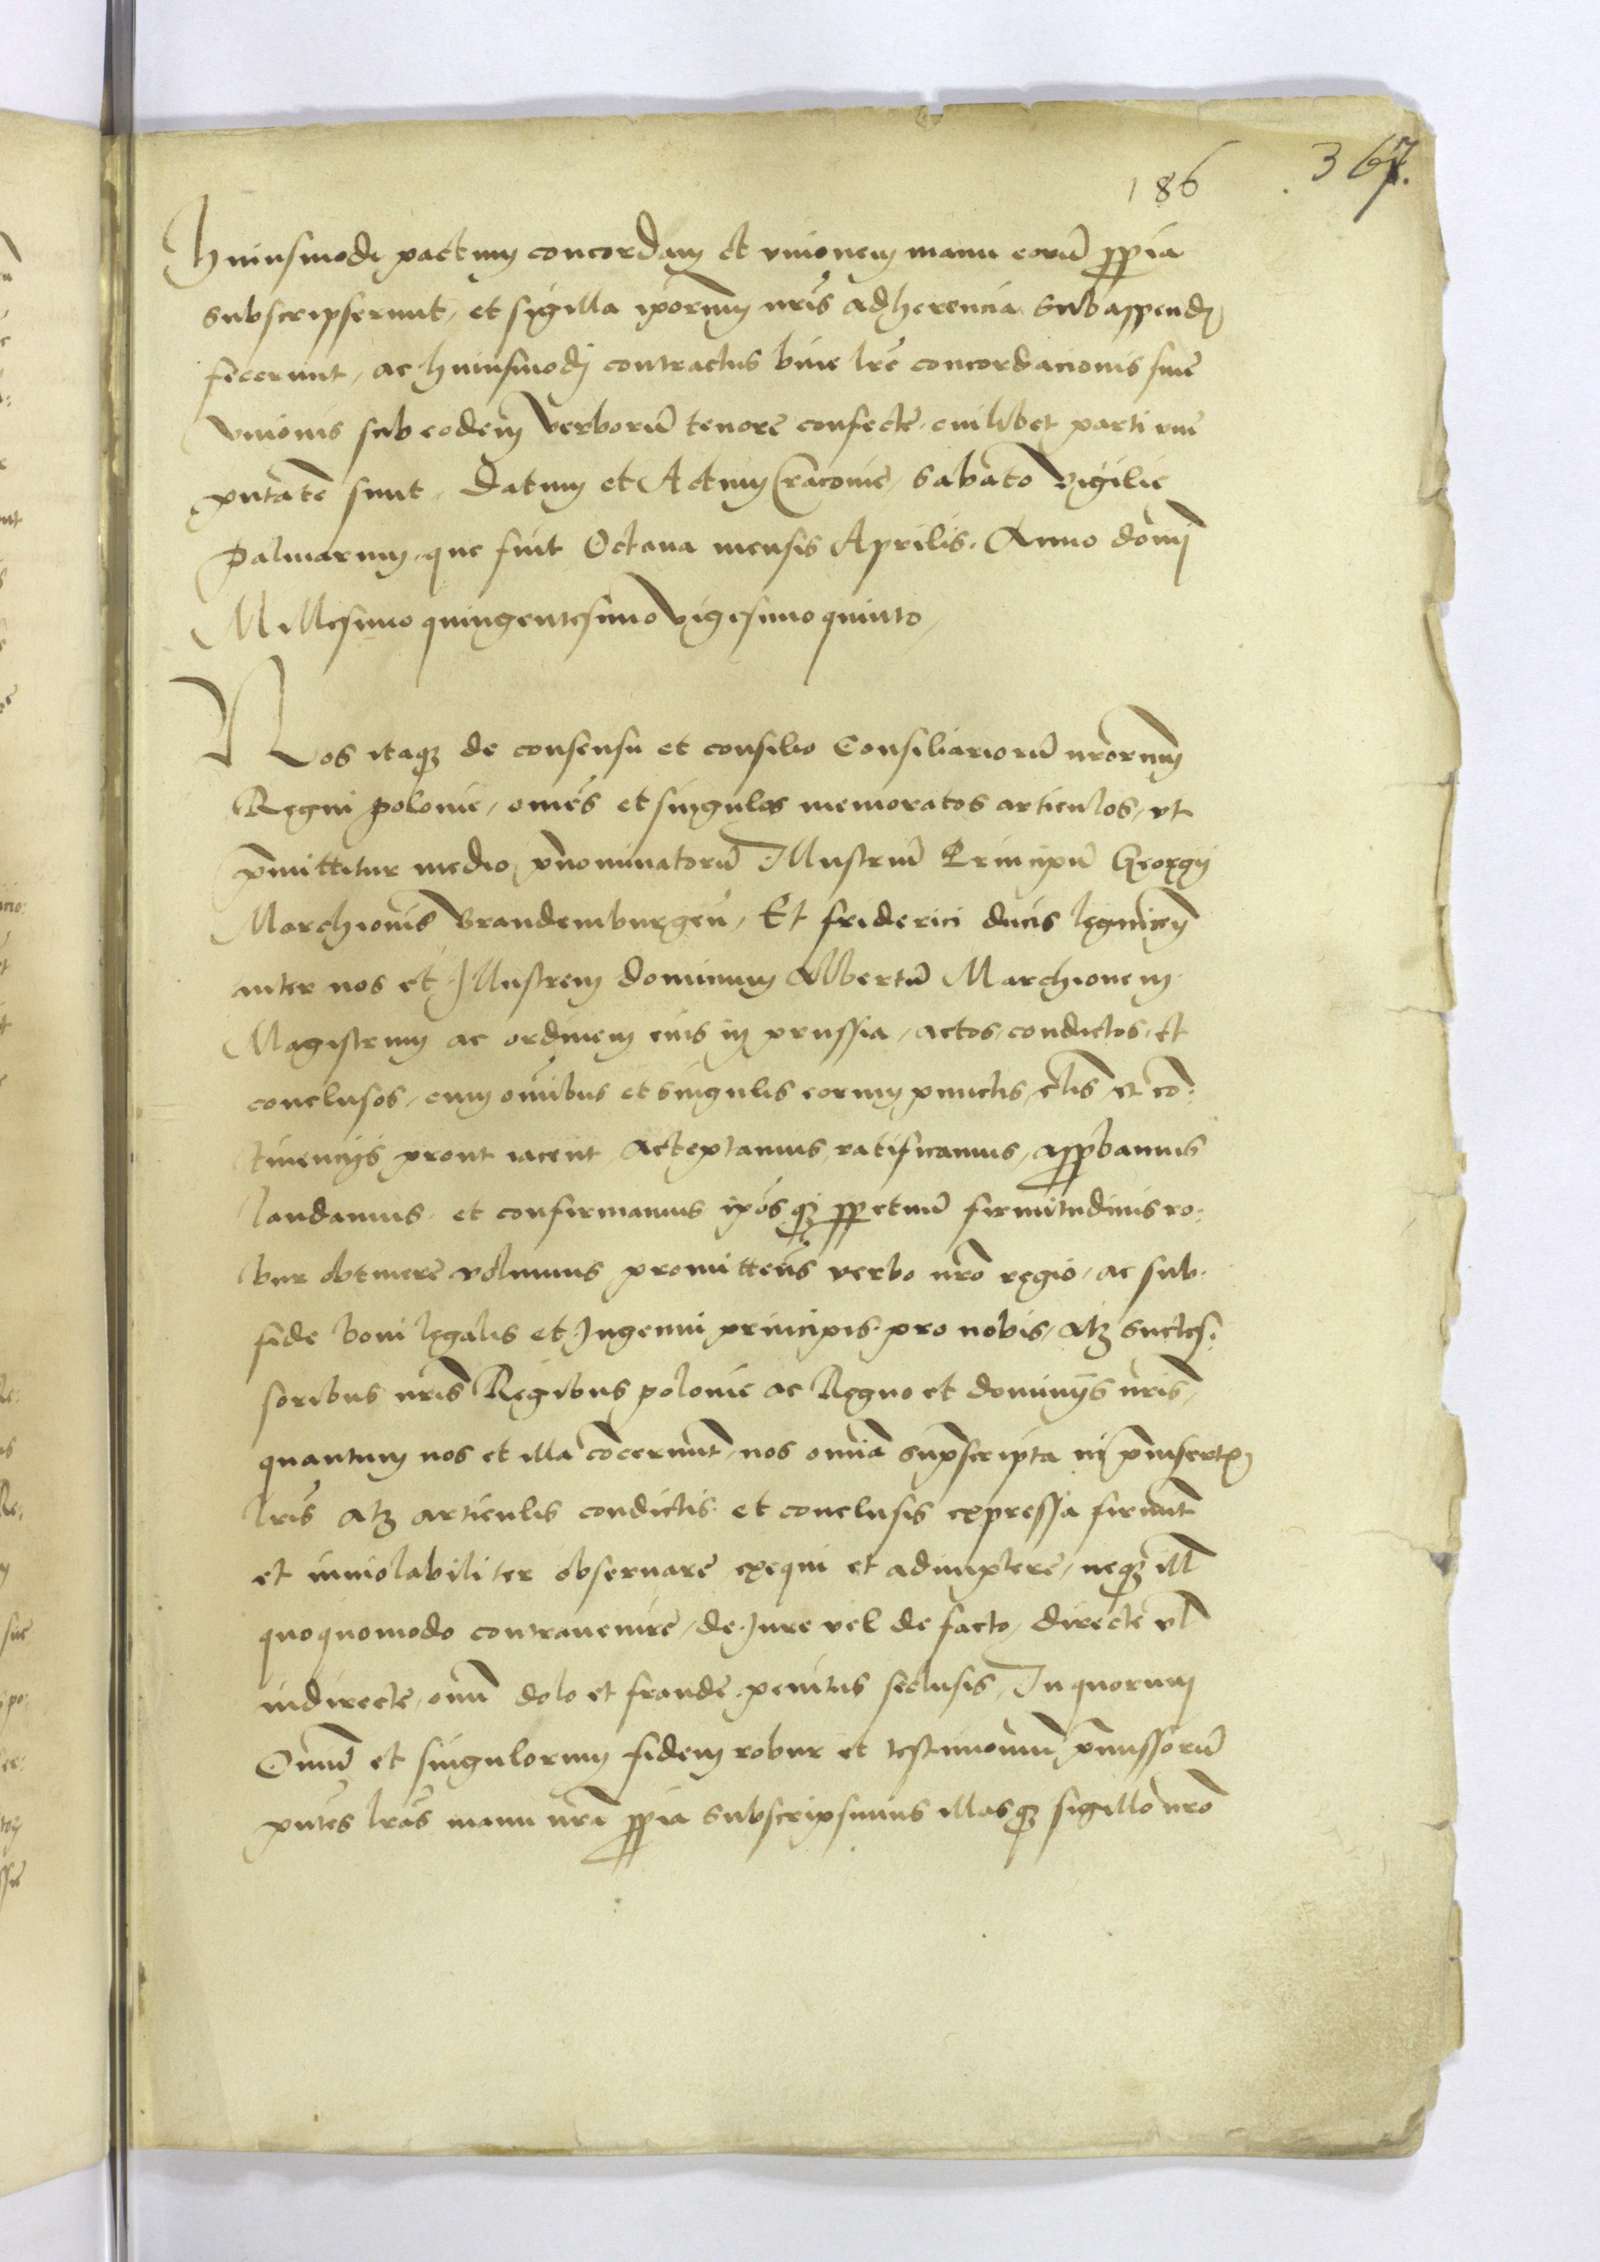 186
367.
Huiusmodi pactum concordiam et vnionem manu eorū ppria
subscripserunt, et sigilla ipsorum nris adherencia subappendj
fecerunt, ac huiusmodj contractus bine lre concordacionis siue
vnionis sub eodem verborū tenore confecte cuilibet parti vne
pntate sunt. Datum et Actum Cracouie, sabato vigilie
Palmarum, que fuit Octaua mensis Aprilis. Anno domj
Millesimo quingentesimo vigesimo quinto,
Nos itaq3 de consensu et consilio Consiliariorū nrorum
Regni polonie, omes et singulos memoratos articulos, vt
pmittitur medio pnominatorū Illustriū Principū Georgij
Marchionis Brandemburgeñ, Et friderici ducis legnicen
inter nos et Illustrem dominum Albertū Marchionem
Magistrum ac ordinem eius in prussia, actos, conductos, et
conclusos, cum omibus et singulis eorum punctis, clis et cō:
tinencijs prout iacent, acceptamus, ratificamus, approbamus
laudamus, et confirmamus iposq3 ppetuū firmitudinis ro:
bur obtinere volumus promitteñs verbo nro regio, ac sub
fide boni legalis et Ingenui principis pro nobis, at3 succes:
soribus nris Regibus polonie ac Regno et dominijs nris,
quantum nos et illa cōcernunt, nos omia supscripta in pinsertis
lris at3 articulis condictis et conclusis expressa firmit
et inuiolabiliter obseruare exequi et adimplere, neq3 ill
quoquomodo contrauenire, de Jure vel de facto, directe vl
indirecte, omi dolo et fraude penitus seclusis, In quorum
Omiū et singulorum fidem robur et testimoniū pmissorū
pntes lras manu nra ppria subscripsimus illasq3 sigillo nro